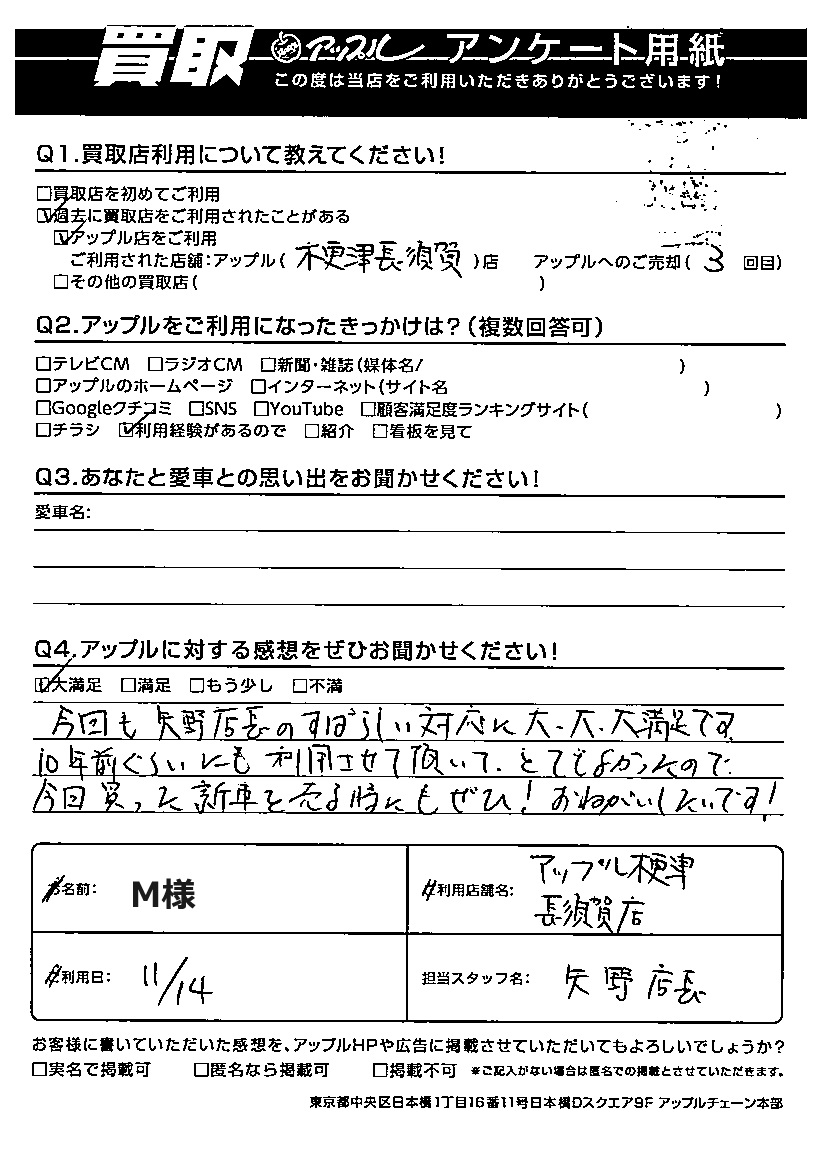 買取 アップル アンケート用紙
この度は当店をご利用いただきありがとうございます!
Q1.買取店利用について教えてください!
□買取店を初めてご利用
☑過去に買取店をご利用されたことがある
☑アップル店をご利用
ご利用された店舗:アップル( 木更津長須賀 )店 アップルへのご売却( 3 回目)
□その他の買取店( )
Q2.アップルをご利用になったきっかけは?(複数回答可)
□テレビCM □ラジオCM □新聞・雑誌(媒体名/ )
□アップルのホームページ □インターネット(サイト名 )
□Googleクチコミ □SNS □YouTube □顧客満足度ランキングサイト( )
□チラシ ☑利用経験があるので □紹介 □看板を見て
Q3.あなたと愛車との思い出をお聞かせください!
愛車名:
Q4.アップルに対する感想をぜひお聞かせください!
☑大満足 □満足 □もう少し □不満
今回も 矢野店長のすばらしい対応に大・大・大満足です
10年前ぐらいにも利用させて頂いて、とてもよかったので
今回買った新車を売る時にもぜひ!おねがいしたいです!
お名前: M様
ご利用店舗名: アップル木更津
長須賀店
ご利用日: 11/14
担当スタッフ名: 矢野店長
お客様に書いていただいた感想を、アップルHPや広告に掲載させていただいてもよろしいでしょうか?
□実名で掲載可 □匿名なら掲載可 □掲載不可 ※ご記入がない場合は匿名での掲載とさせていただきます。
東京都中央区日本橋1丁目16番11号日本橋Dスクエア9F アップルチェーン本部